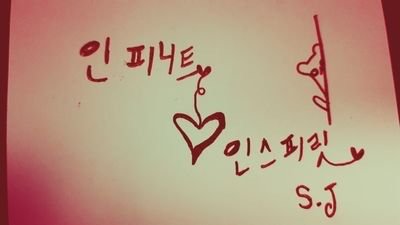 인피니트
인스피릿
S.J